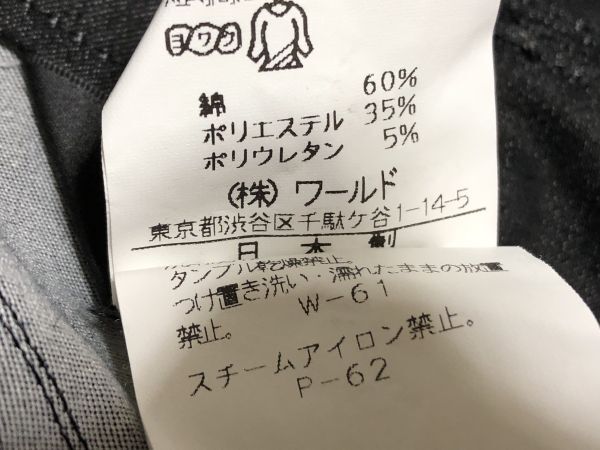 ヨワク
綿 60%
ポリエステル 35%
ポリウレタン 5%
(株) ワールド
東京都渋谷区千駄ケ谷1-14-5
日本製
タンブル乾燥禁止
つけ置き洗い・濡れたままの放置
禁止。 W-61
スチームアイロン禁止。
P-62